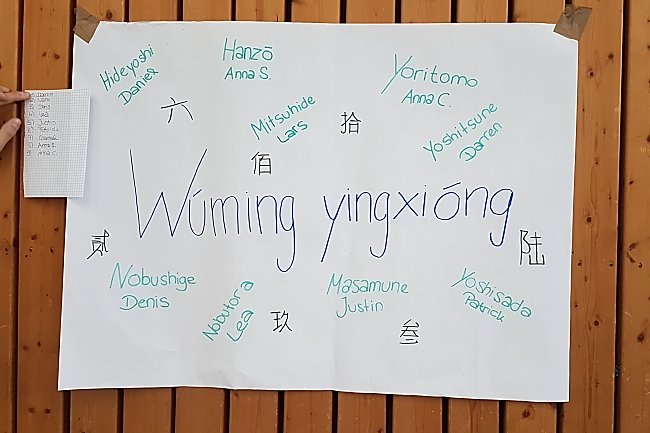 Hideyoshi
Daniel
Hanzō
Anna S.
Yoritomo
Anna C.
六
Mitsuhide
Lars
拾
Yoshitsune
Darren
佰
Wúming yingxióng
貳
陆
Nobushige
Denis
Nobutora
Lea
玖
Masamune
Justin
叁
Yoshisada
Patrick
Justin
Anna S.
Anna C.